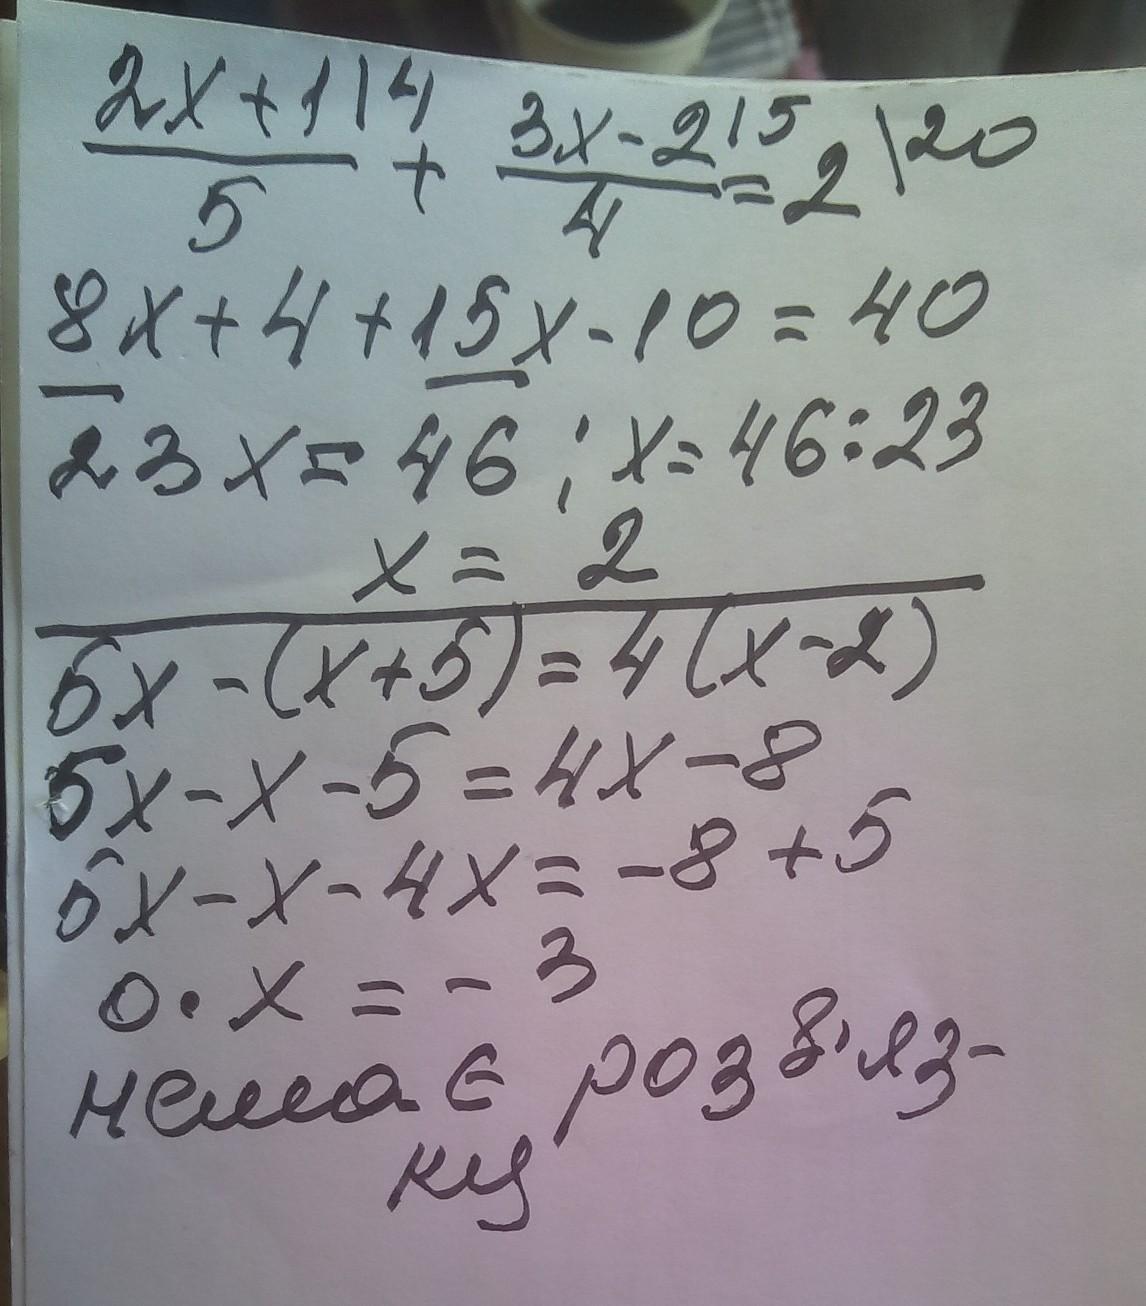 2x+1|4 / 5 + 3x-2|5 / 4 = 2 \20
8x+4+15x-10=40
23x=46; x=46:23
x= 2
5x-(x+5)=4(x-2)
5x-x-5=4x-8
5x-x-4x=-8+5
0·x=-3
немає розв'яз-
ку